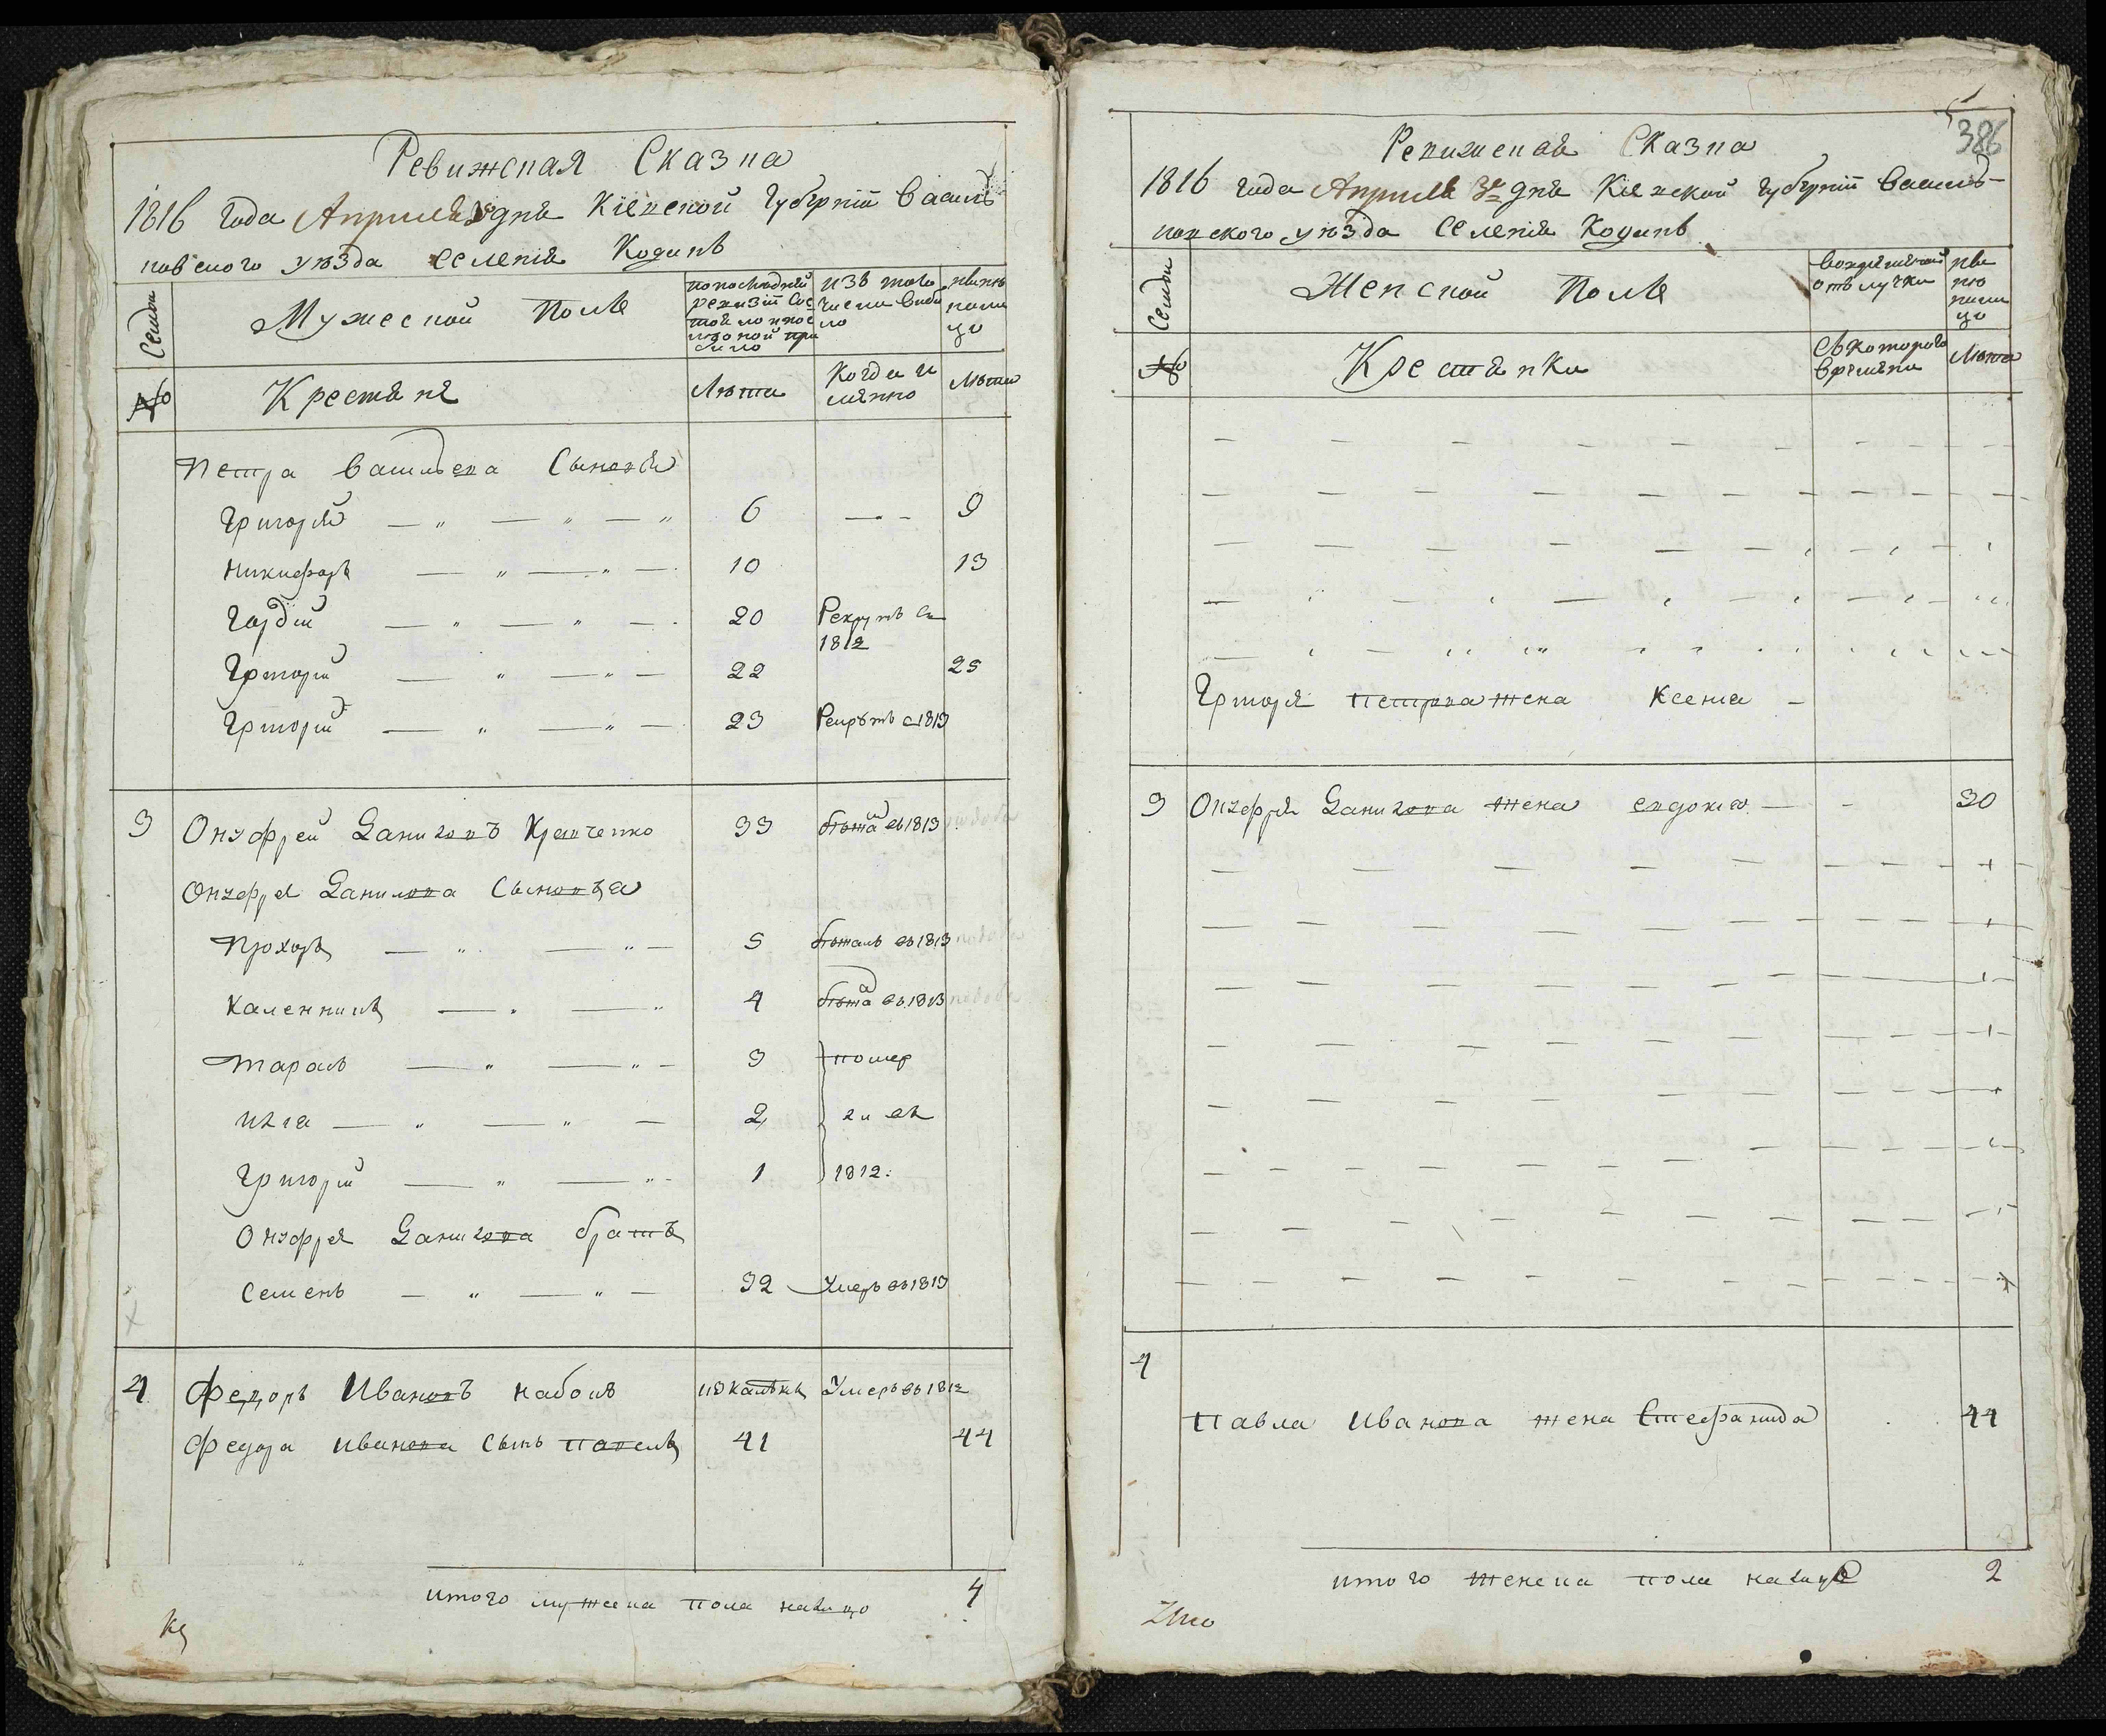 Ревижская Сказка
1816 года Апреля 3 дня Кіевской губерніи Василь
ковского уѣзда селенія Коданъ
Семьи
Мужеской Полъ
по последней ревизіи состояло и после оной прибыло
изъ того числа выбыло
ныне на лицо
№
Крестяне
Лѣта
Когда именно
Лѣта
Петра Васильева Сыновья
Григорій — „ — „ — „ 6 — - 9
Никифоръ — „ — „ — 10 13
Гордій — „ — „ — 20 Рекрутъ
1812
Григорій — „ — „ — 22 25
Григорій — „ — „ — 23 Рекрутъ с 1813
3 Онуфрей Даниловъ Кравченко 33 бѣжа въ 1813
Онуфрея Данилова Сыновья
Прохоръ — „ — „ — 5 бѣжалъ въ 1813
Каленникъ — „ — „ 4 бѣжа въ 1813
Тарасъ — „ — „ — 3 помер
Илія — „ — „ — 2 ли въ
Григорій — „ — „ - 1 1812.
Онуфрея Данилова братъ
Семенъ — „ — „ — 32 Умеръ въ 1813
4 Федоръ Ивановъ Набокъ Умеръ въ 1812
Федора Иванова сынъ Павелъ 41 44
итого мужеска пола налицо 4
386
Ревижская Сказка
1816 года Апреля 3го дня Кіевской губерніи Василь-
ковского уѣзда Селенія Коданъ
Семьи
Женской Полъ
во временной отлучки
ныне налицо
№
Крестянки
Съ которого времяни
Лѣта
Григорія Петрова жена Ксенія —
3 Онуфрія Данилова жена Евдокія — - 30
4
Павла Иванова жена Стефанида 44
итого женска пола налицо 2